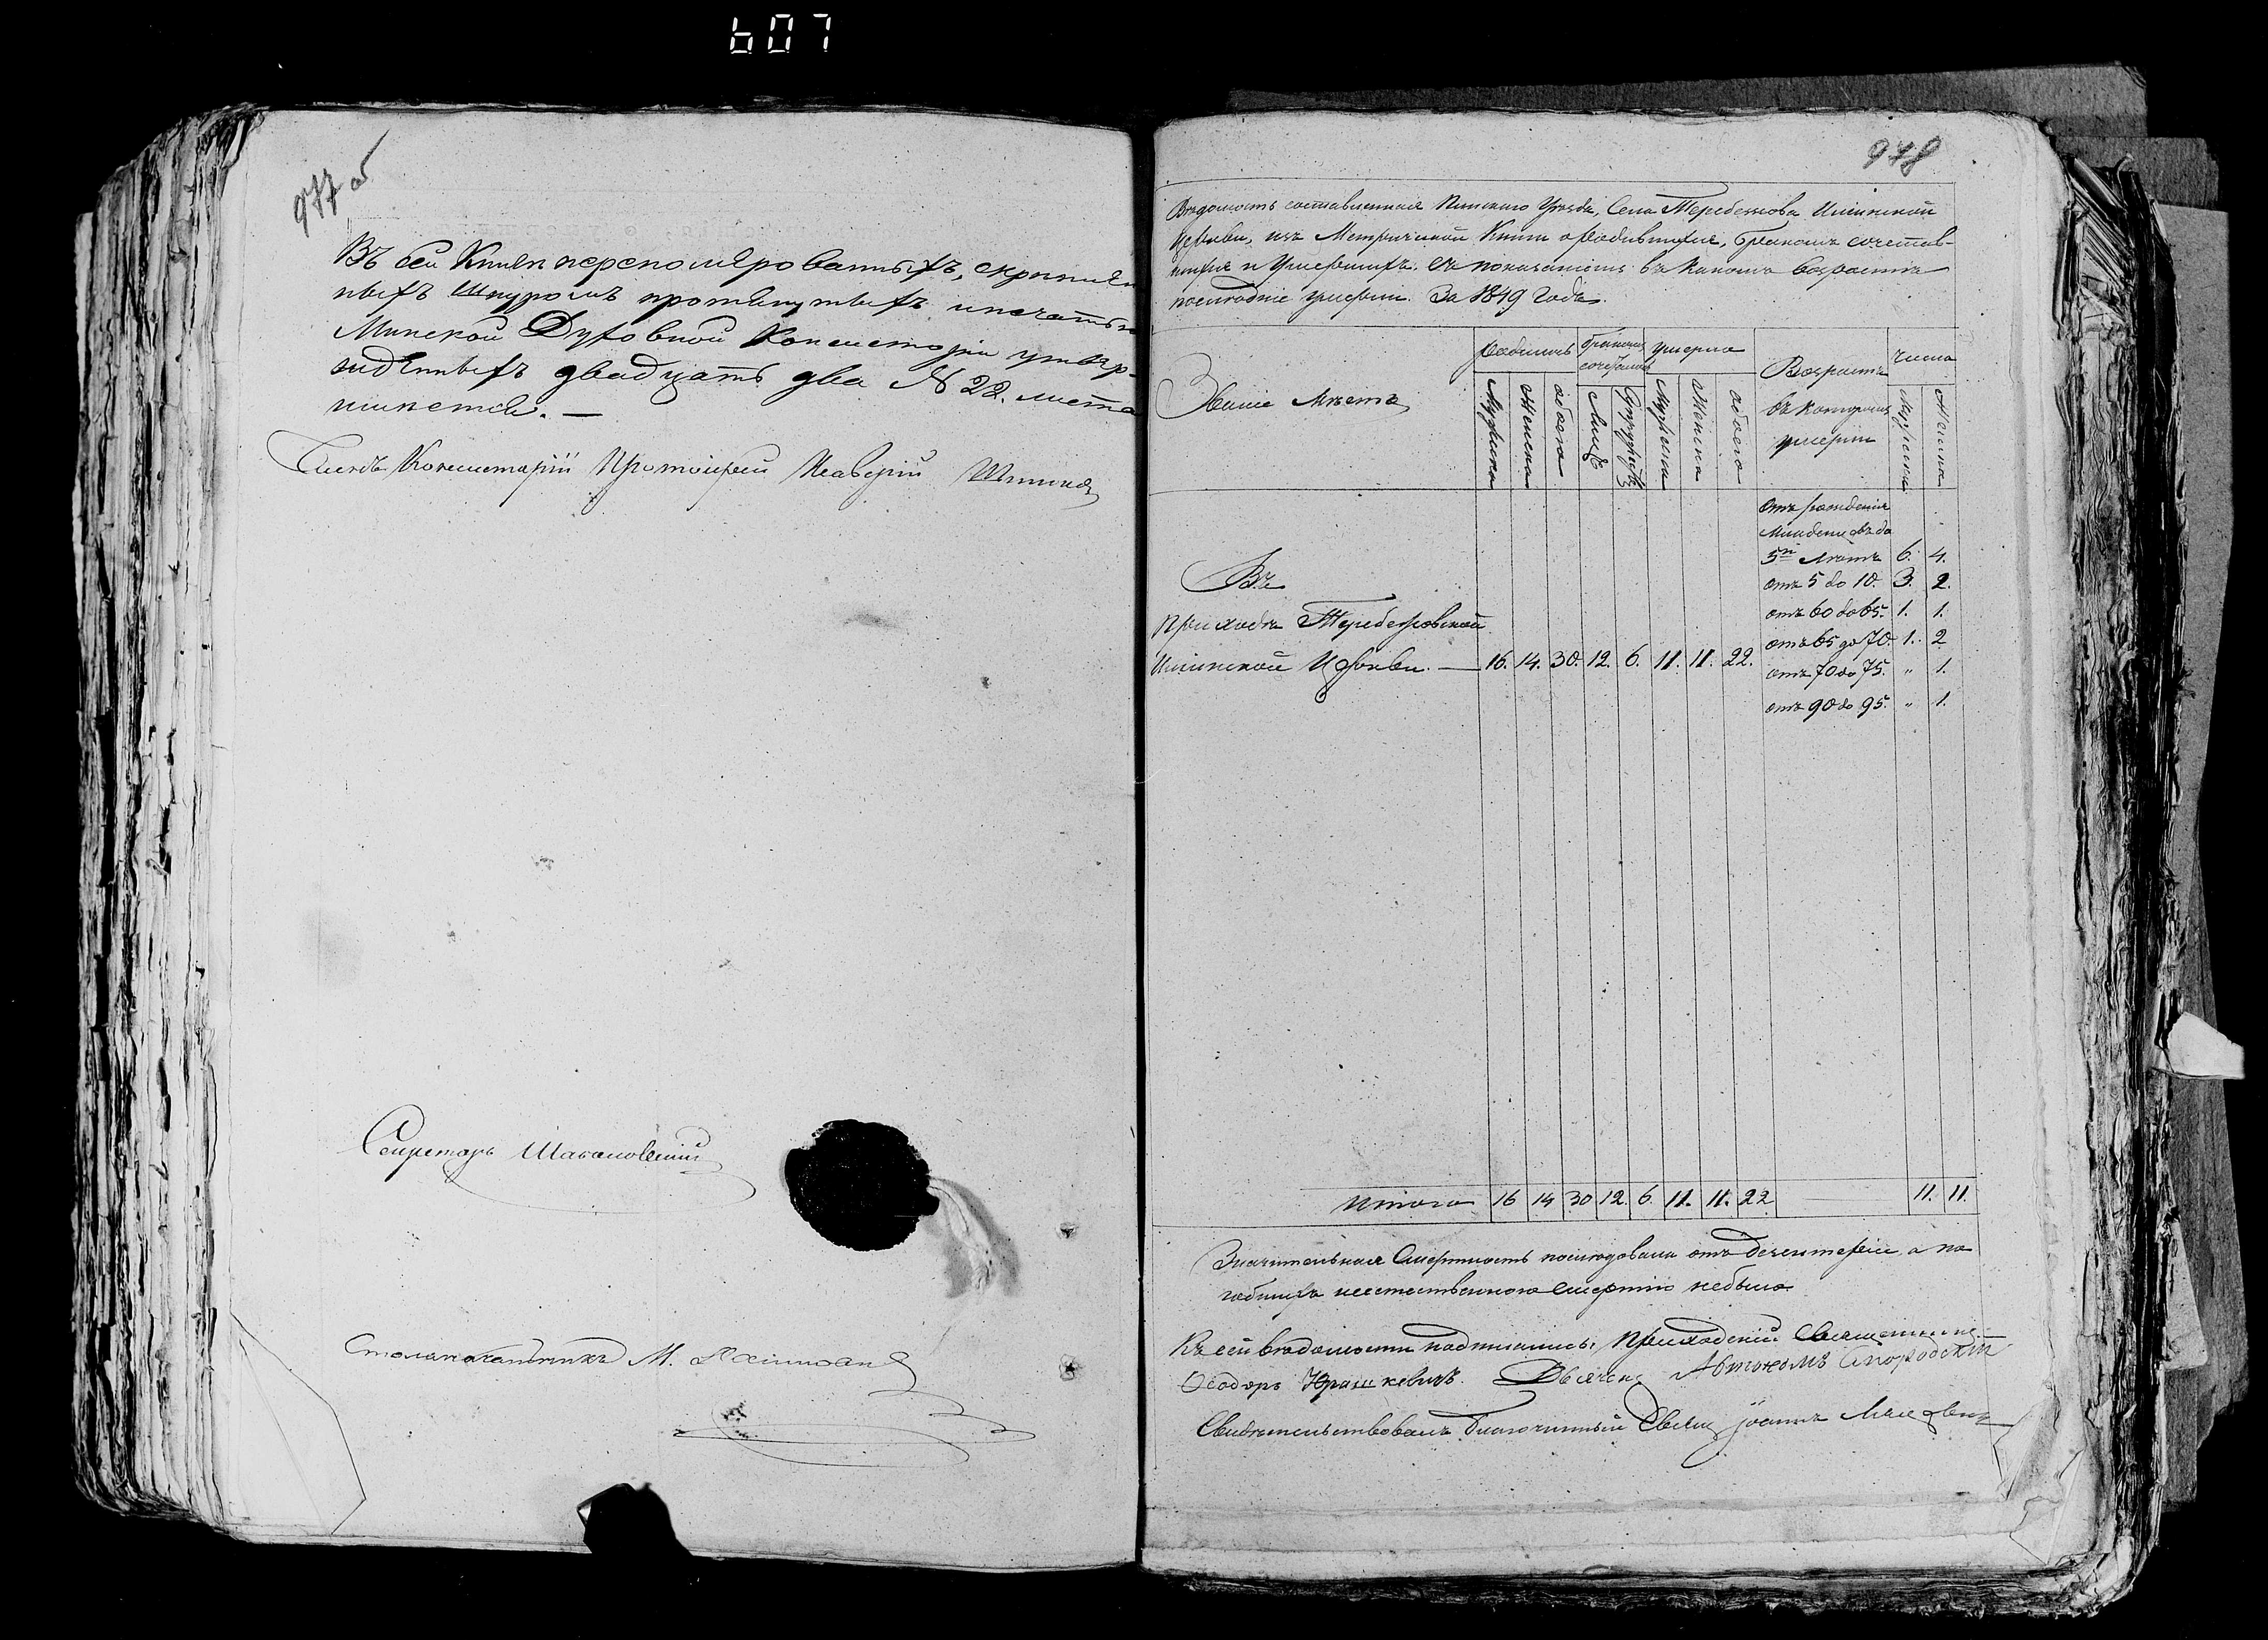 607
977 об
Въ сей Книгѣ перенумерованныхъ, скрѣплен
ныхъ шнуромъ протянутыхъ и печатью
Минской Духовной Консисторіи утвер-
жденныхъ двадцать два № 22. листа
имѣется. —
Членъ Консисторіи Протоіерей
Секретарь
Столоначальникъ М.
978
Вѣдомость составленная Пинскаго Уѣзда, Села Теребежова Ильинской
Церкви, изъ Метрической Книги о родившихся, бракомъ сочетав-
шихся и Умершихъ. Съ показаніемъ въ какомъ возрастѣ
послѣдніе умерли. За 1849 годъ.
Званіе Мѣстъ
родилось
бракомъ сочеталось
умерло
Возрастъ въ которомъ умерли
число
Мужеска Женска обоего Лицъ Супружествъ Мужеска Женска обоего Мужеска Женска
отъ рожденія
Младенцовъ до
5ти Лѣтъ 6. 4.
Въ отъ 5 до 10. 3. 2.
отъ 60 до 65. 1. 1.
Приходѣ Теребежовской
отъ 65 до 70. 1. 2
Ильинской Церкви. — 16. 14. 30. 12. 6. 11. 11. 22.
отъ 70 до 75. " 1.
отъ 90 до 95. " 1.
Итого 16 14 30 12. 6. 11. 11. 22 11. 11.
Значительная Смертность послѣдовала отъ дезентеріи, а по
гибшихъ неестественною смертію небыло
Къ сей вѣдомости подписались: Приходскій Священникъ
Ѳеодоръ Юрашкевичъ. Дьячекъ Автономъ Смородскій
Свидѣтельствовалъ Благочинный Свящ Іоаннъ